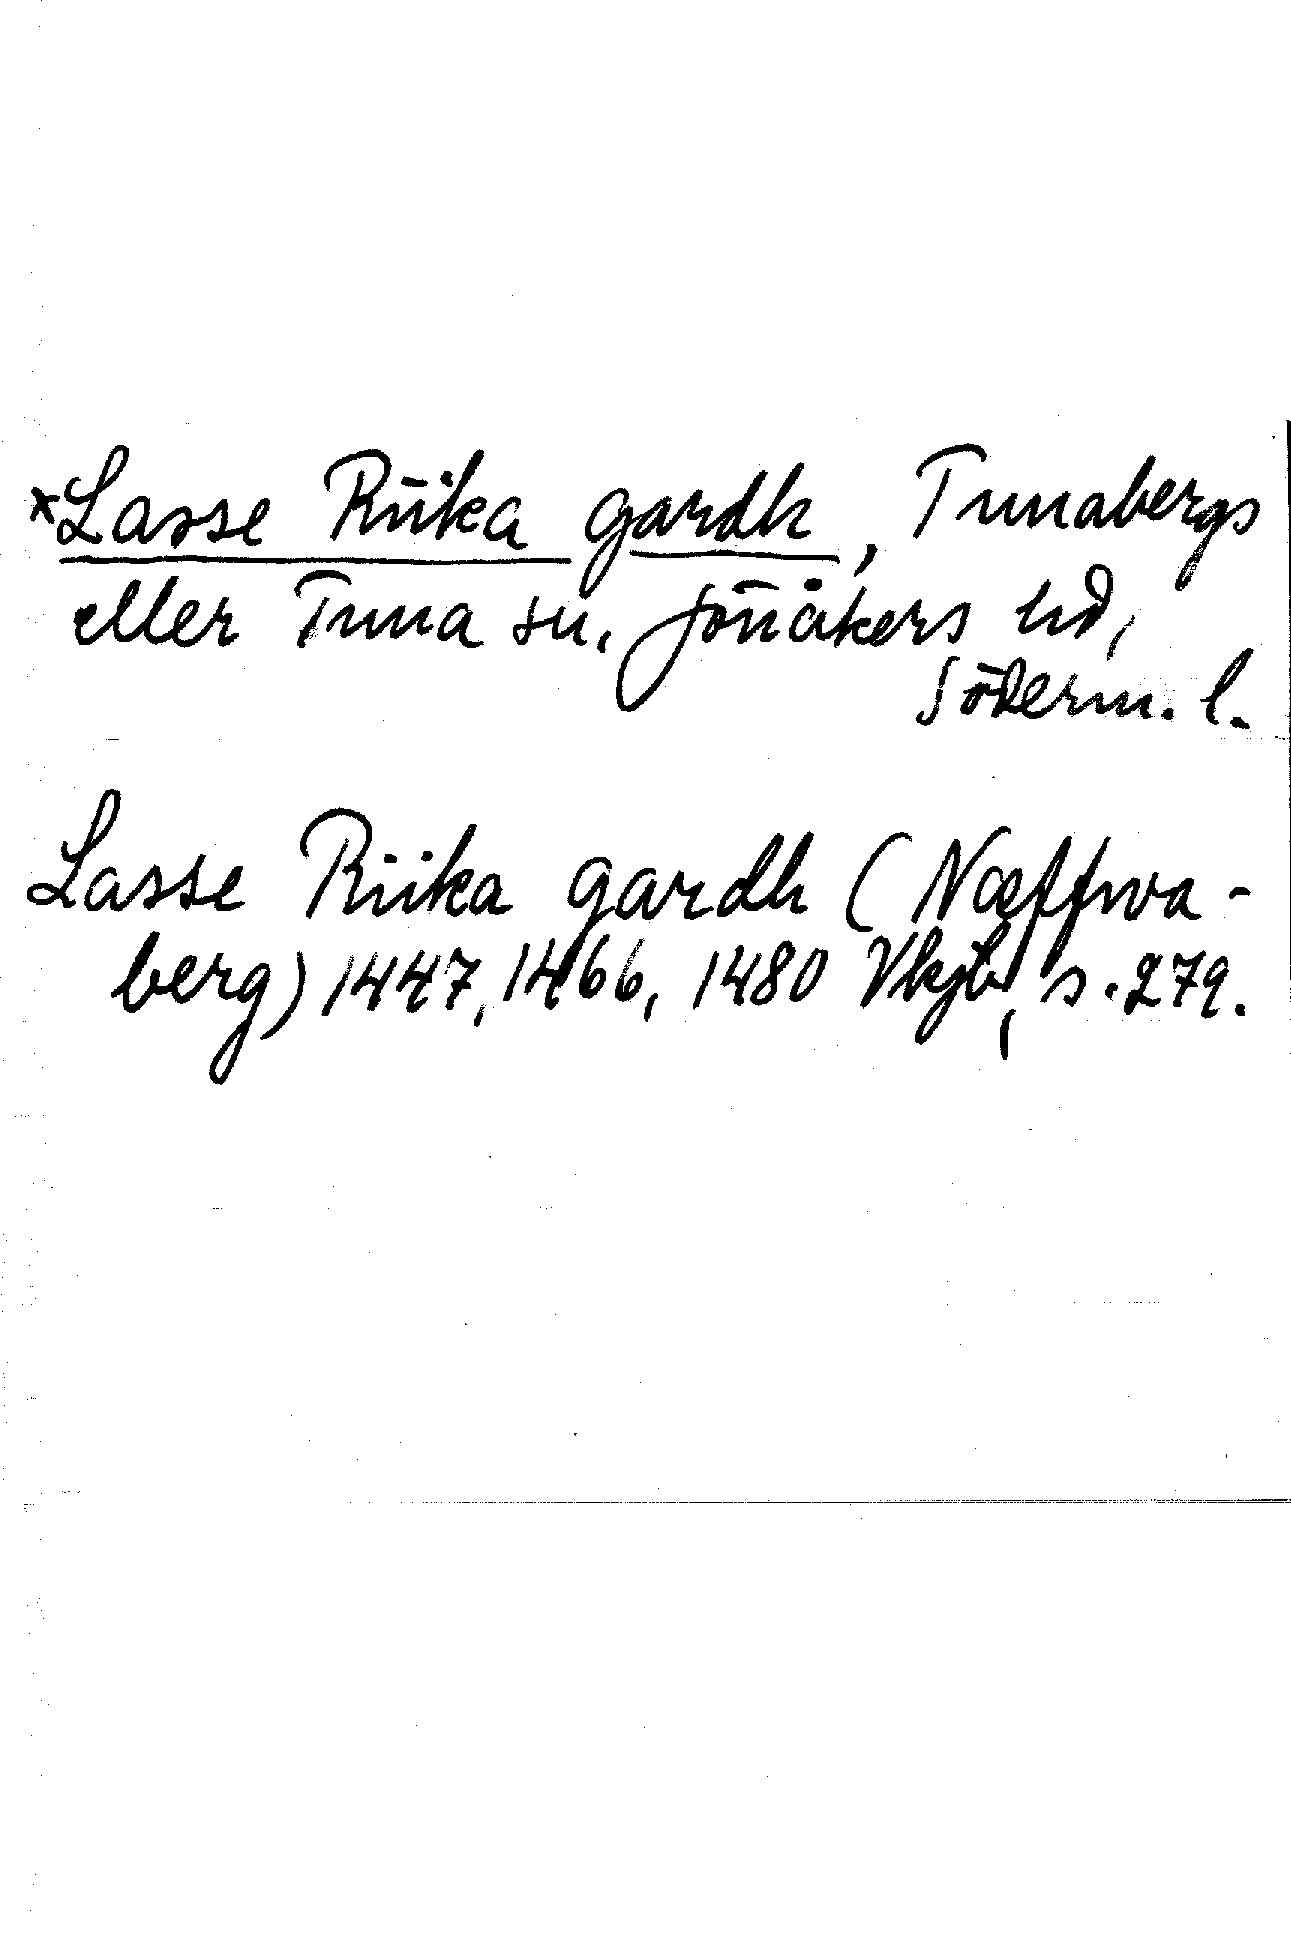 ×Lasse Riika gardh, Tunabergs
eller Tuna sn, Jönåkers hd,
Söderm. l.
Lasse Riika gardh (Næffwa-
berg) 1447, 1466, 1480 Vkjb, s. 279.